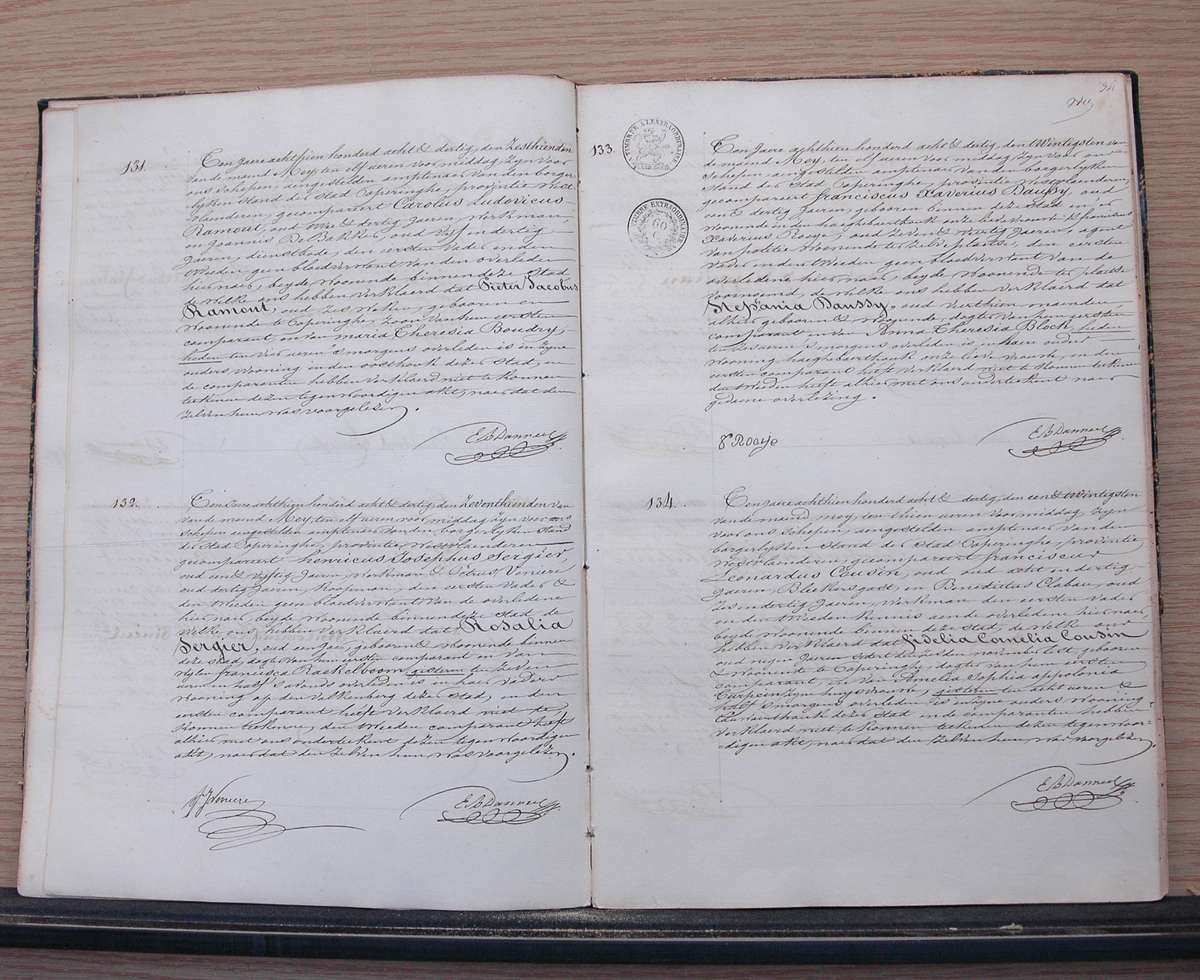 131.
Ten Jare achthien honderd acht & dertig, den Zesthienden
van de maand Mey, ten elf uren voormiddag zyn voor
ons schepen aengestelden amptenaer van den borger-
lyken stand der stad Poperinghe, provintie west
vlaenderen, gecompareert Carolus Ludovicus
Ramout, oud dertig Jaeren, werkman
en Joannis De Bakker oud vyf en dertig
Jaeren, dienstbode, den eersten vader en den
tweeden geen bloedverwant van den overleden
hier naer, beyde woonende binnen deze stad
de welke ons hebben verklaerd dat Pieter Jacobus
Ramout, oud zes weken, gebooren en
woonende te Poperinghe, zoon van den eersten
comparant en van maria Theresia Boudry,
heden ten vier uren s'morgens overleden is in zyne
ouders wooning in den oosthoek dezer stad, en
de comparanten hebben verklaerd niet te konnen
tekenen dezen tegenwoordigen akte, naer dat den
zelven hun was voorgelezen.
E B Danneel
132.
Ten Jare achthien honderd acht & dertig, den Zeventhienden van
van de maand Mey, ten elf uren voormiddag zyn voor ons
schepen aengestelden amptenaer van den borgerlyken stand
der stad Poperinghe, provintie Westvlaenderen
gecompareert henricus Josephus Sergier,
oud een & vyftig Jaeren, werkman & Petrus Verriere
oud dertig Jaeren, koopman, den eersten vader &
den tweeden geen bloedverwant van de overledene
hier naer, beyde woonende binnen deze stad, de
welke ons hebben verklaerd dat Rosalia
Sergier, oud een Jaer, gebooren & woonende binnen
deze stad, dogter van den eersten comparant en van
francisca Raekelboom, gisteren ten zeven
uren en half s'avonds overleden is in haer vaders
wooning op den valkenberg dezer stad, en den
eersten comparant heeft verklaerd niet te
konnen tekenen, den tweeden comparant heeft
alhier met ons onderteekent dezen tegenwoordigen
akte, naer dat den zelven hun was voorgelezen.
E B Danneel
133.
Ten Jaere achthien honderd acht & dertig, den twintigsten van
de maand Mey, ten elf uren voor middag zyn voor ons
schepen aengestelden amptenaer van den borgerlyken
stand der stad Poperinghe, provintie westvlaenderen,
gecompareert franciscus Xaverius Daussy oud
een & dertig Jaeren, gebooren binnen deze stad en er
woonende in den haeghebaerthoek onze lieve vrouw & franciscus
Xaverius Rooye oud zeven & veertig Jaeren, agent
van politie woonende te zelve plaetse, den eersten
vader en den tweeden geen bloedverwant van de
overledene hier naer, beyde woonende te plaetse
voornoemd, de welke ons hebben verklaerd dat
Stephania Daussy, oud veerthien maenden,
alhier gebooren & woonende, dogter van den eersten
comparant en van Anna Theresia Block, heden
uren s'morgens overleden is in haere ouders
wooning haeghebaerthoek onze lieve vrouw, en den
eersten comparant heeft verklaerd niet te konnen tekenen
den tweeden heeft alhier met ons onderteekent naer
gedaene overlezing.
F Rooye
E B Danneel
134.
Ten Jaere achthien honderd acht & dertig, den een & twintigsten
van de maand mey ten thien uren voor middag, zyn
voor ons schepen, aengestelden amptenaer van den
borgerlyken stand der stad Poperinghe, provintie
westvlaenderen, gecompareert franciscus
Leonardus Cousin, oud acht en dertig
Jaeren, Blekersgast en Benedictus Clabau, oud
zes en dertig Jaeren, werkman den eersten vader
en den tweeden kennis van de overledene hier naer
beyde woonende binnen deze stad, de welke ons
hebben verklaerd dat Giselia Cornelia Cousin
oud negen Jaeren
& woonende te Poperinghe, dogter van den eersten
comparant, en van Amelia Sophia appolonia
Carpein zyne huysvrouw, gisteren ten acht uren &
half s'morgens overleden is in zyne ouders wooning
dezer stad en de comparanten hebben
verklaerd niet te konnen tekenen dezen tegenwoor-
digen akte, naer dat den zelven hun was voorgelezen.
E B Danneel